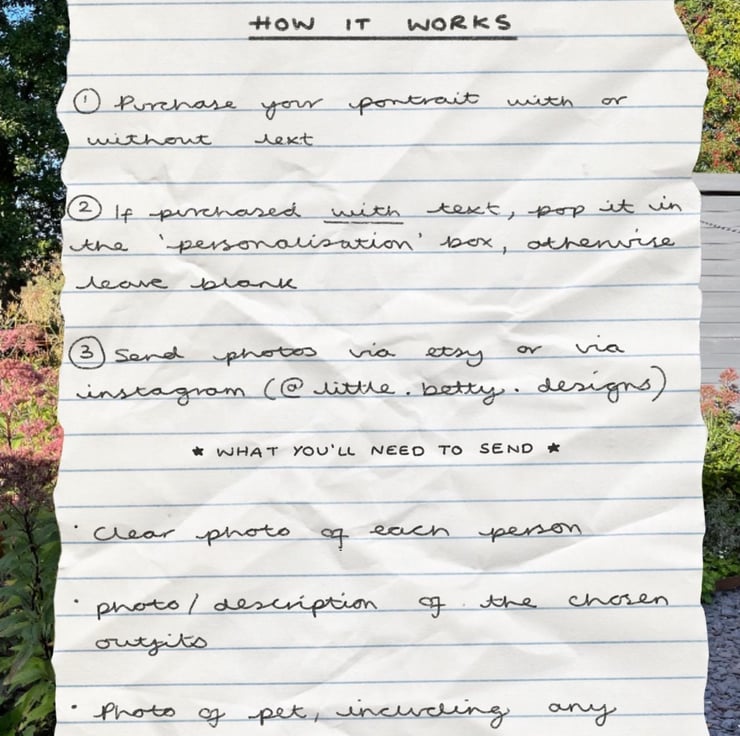 HOW IT WORKS
① Purchase your portrait with or
without text
② If purchased with text, pop it in
the 'personalisation' box, otherwise
leave blank
③ Send photos via etsy or via
instagram (@little.betty.designs)
* WHAT YOU'LL NEED TO SEND *
· Clear photo of each person
· photo/description of the chosen
outfits
· Photo of pet, including any